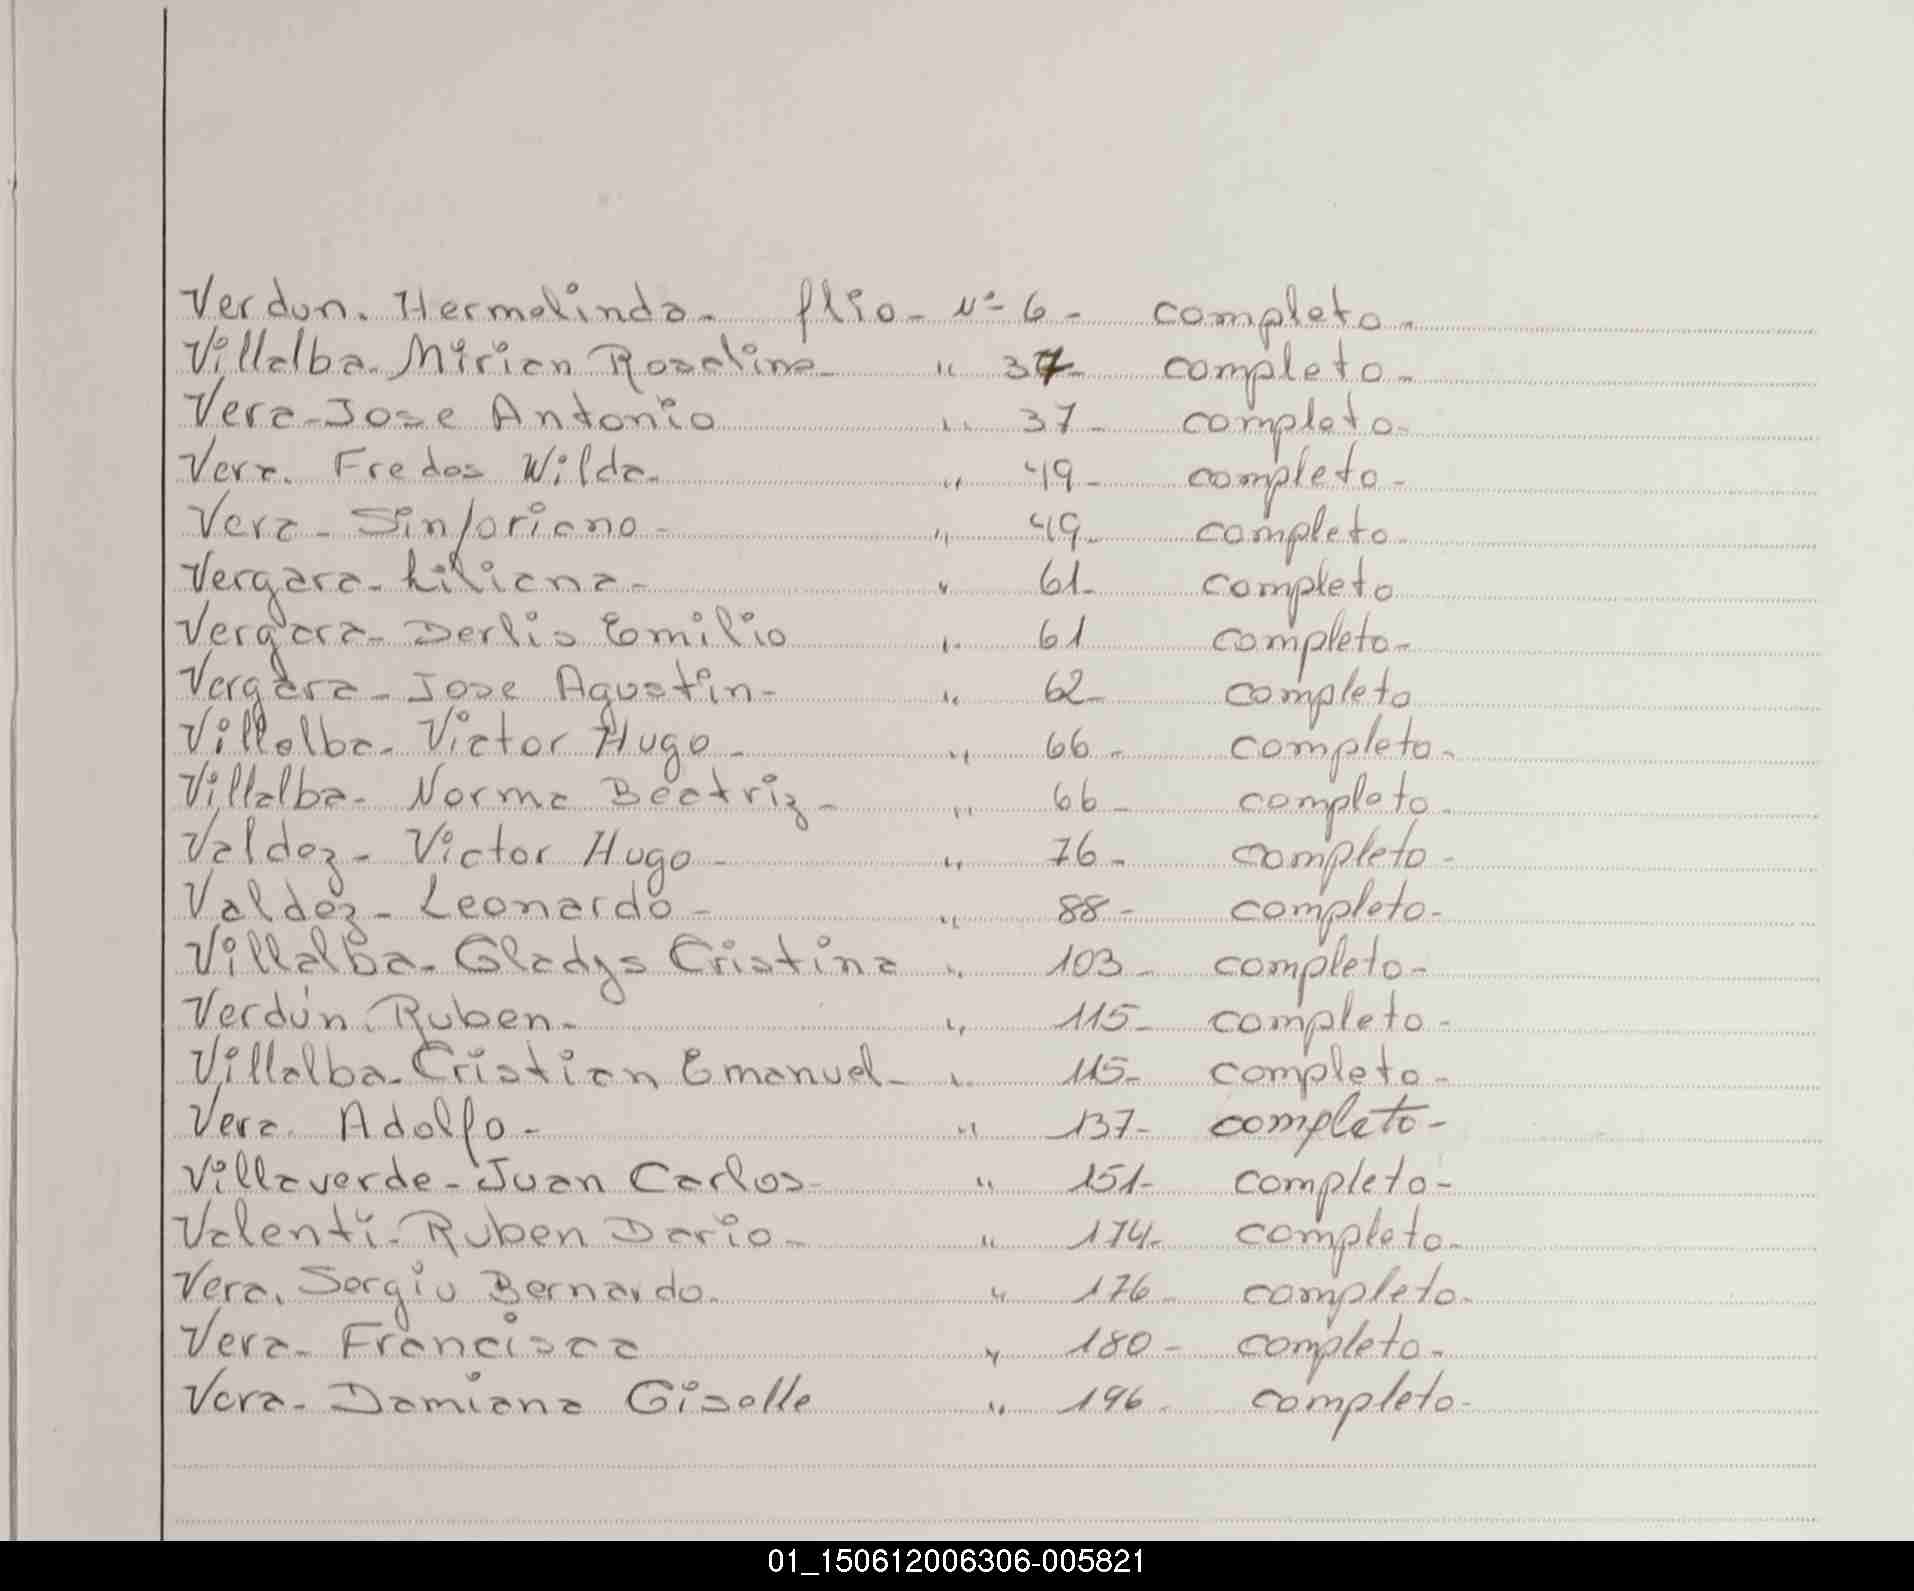 Verdun. Hermelinda. flio - Nº 6 - completo -
Villalba. Mirian Rosalina - " 37 - completo -
Vera - Jose Antonio " 37 - completo -
Vera. Fredos Wilda. " 49 - completo -
Vera - Sinforiano - " 49 - completo -
Vergara - Liliana - " 61 - completo
Vergara - Derlis Emilio " 61 completo -
Vergara - Jose Agustin - " 62 - completo
Villalba - Victor Hugo - " 66 - completo -
Villalba - Norma Beatriz - " 66 - completo -
Valdez - Victor Hugo - " 76 - completo -
Valdez - Leonardo - " 88 - completo -
Villalba - Gladys Cristina " 103 - completo -
Verdún. Ruben - " 115 - completo -
Villalba - Cristian Emanuel - " 115 - completo -
Vera. Adolfo - " 137 - completo -
Villaverde - Juan Carlos - " 151 - completo -
Valenti - Ruben Dario - " 174 - completo -
Vera. Sergio Bernardo. " 176 - completo -
Vera - Francisca " 180 - completo -
Vera - Damiana Giselle " 196 - completo -
01_150612006306-005821